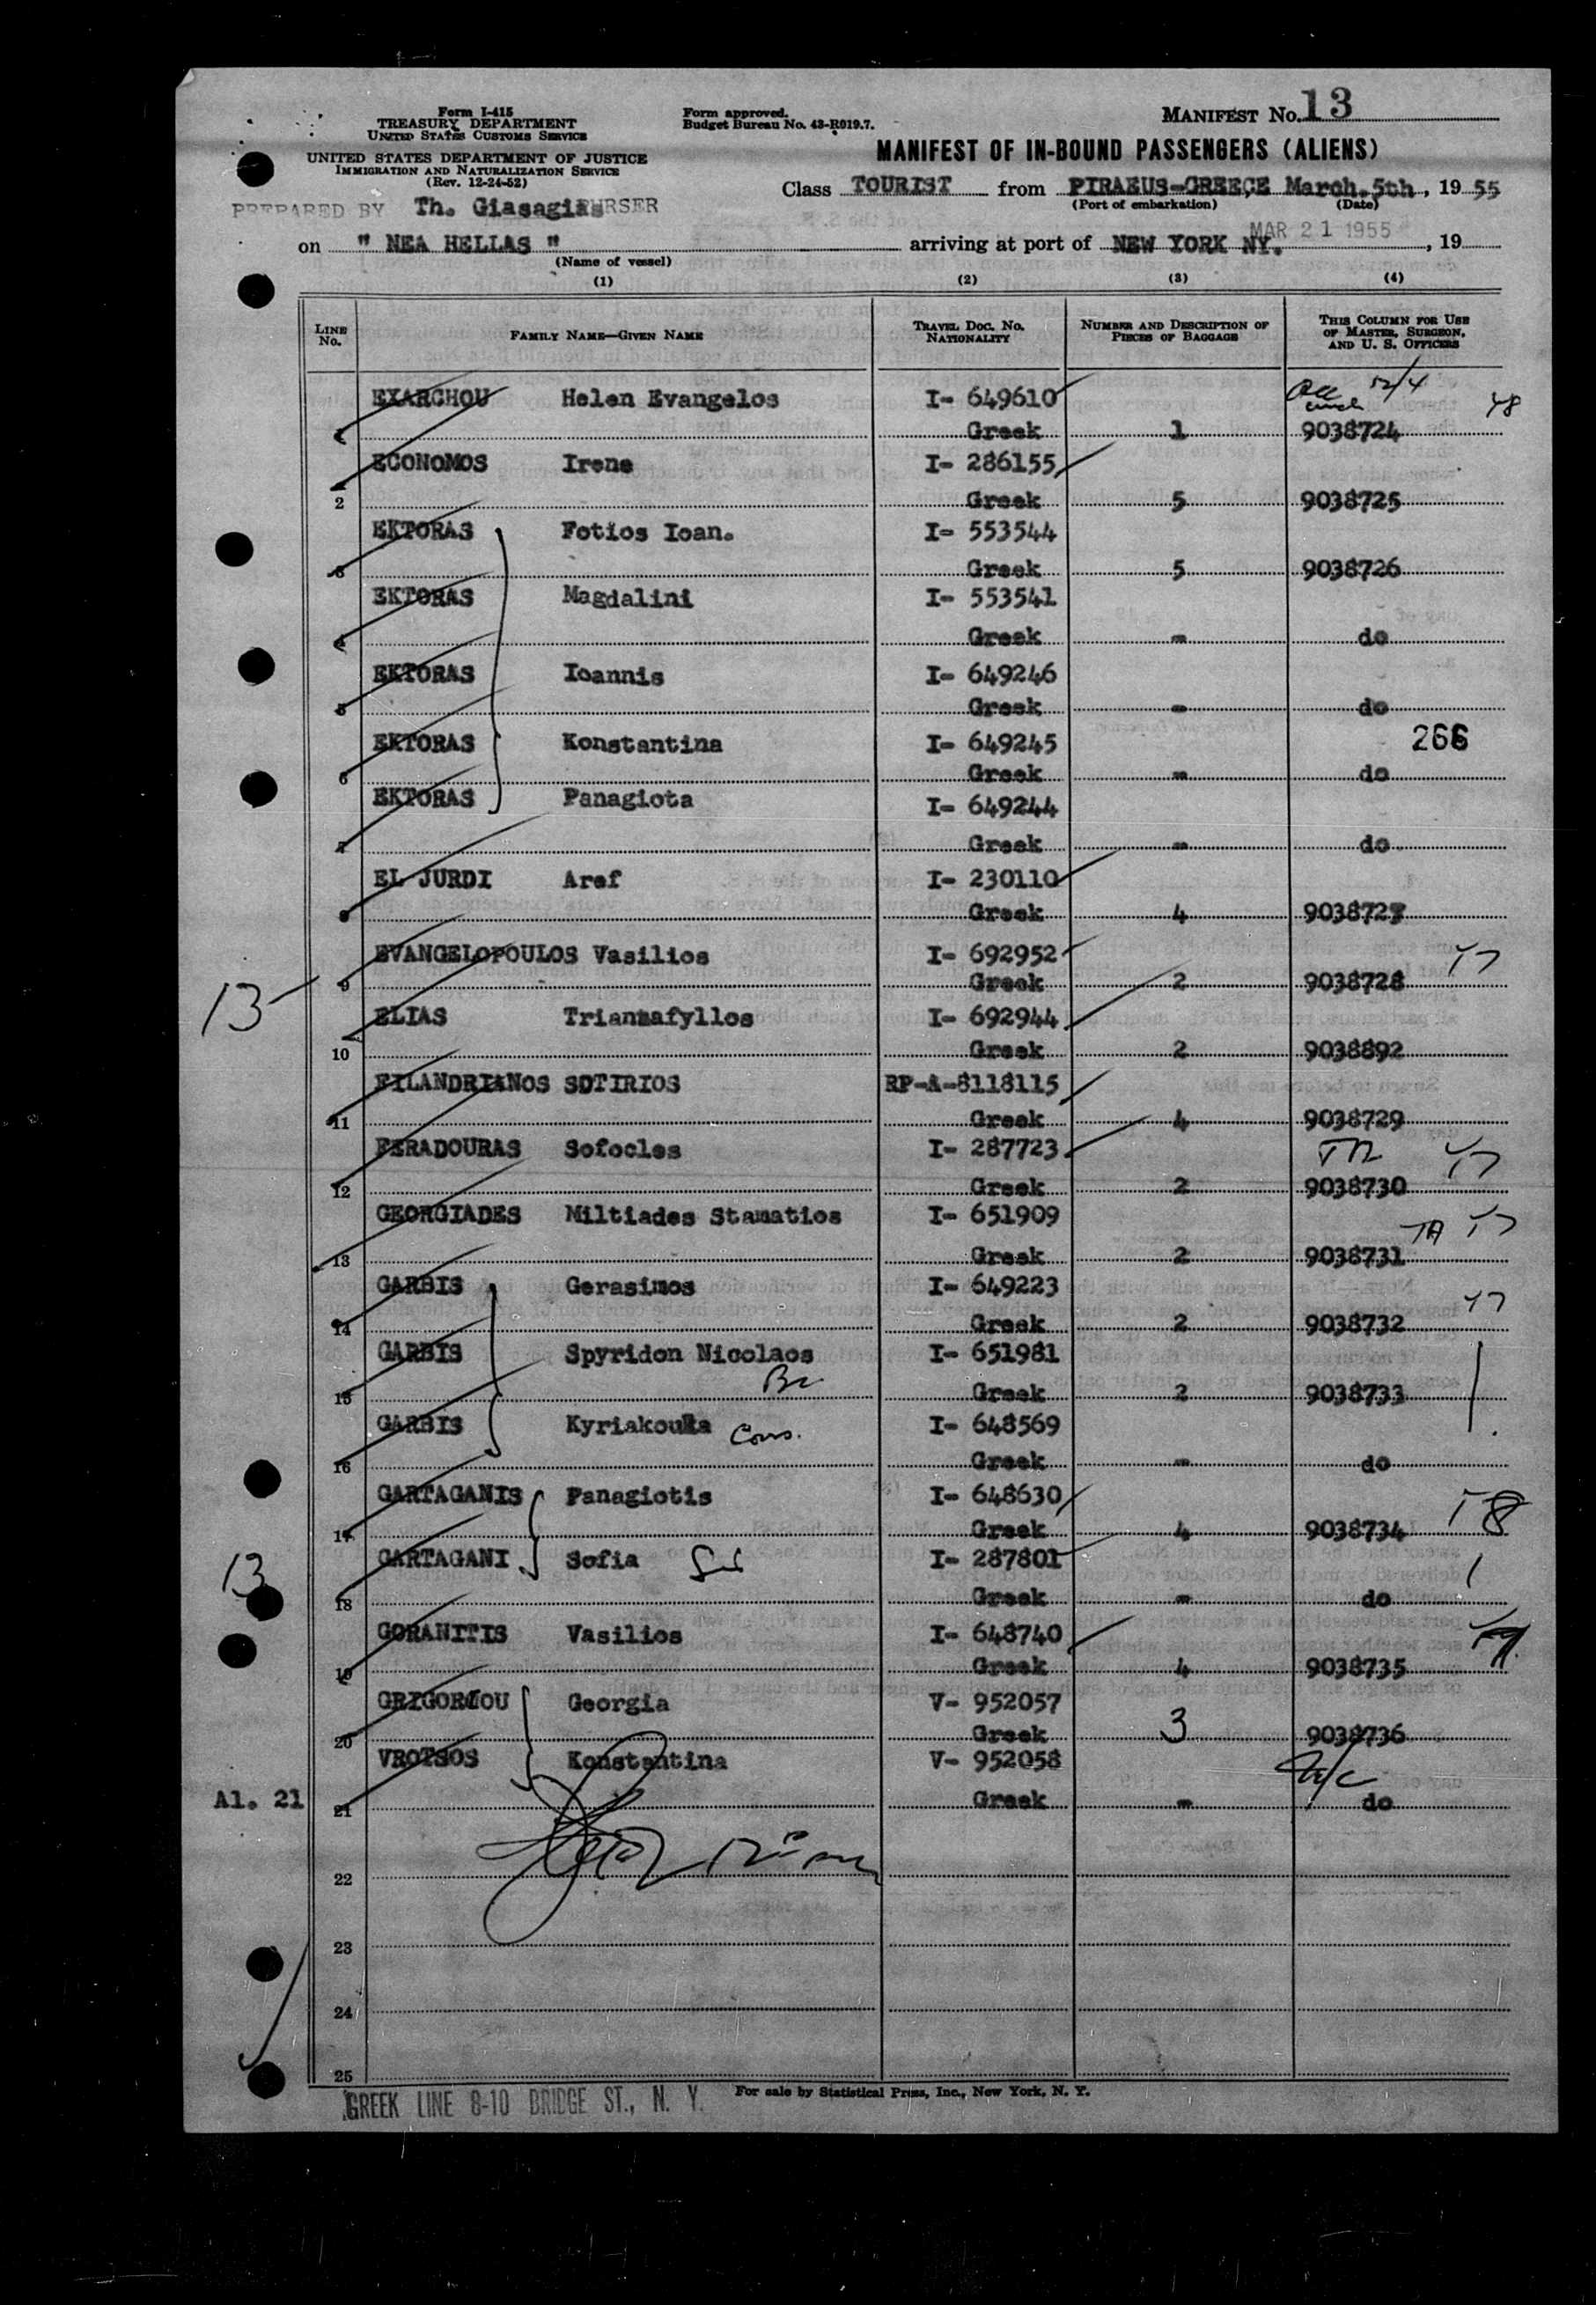 Form I-415
TREASURY DEPARTMENT
UNITED STATES CUSTOMS SERVICE
UNITED STATES DEPARTMENT OF JUSTICE
IMMIGRATION AND NATURALIZATION SERVICE
(Rev. 12-24-52)
Form approved.
Budget Bureau No. 43-R019.7.
MANIFEST No. 13
MANIFEST OF IN-BOUND PASSENGERS (ALIENS)
Class TOURIST from PIRAEUS-GREECE March.5th, 1955
(Port of embarkation) (Date)
PREPARED BY Th. Giasagias PURSER
MAR 21 1955
on " NEA HELLAS " arriving at port of NEW YORK NY. , 19
(Name of vessel)
(1) (2) (3) (4)
LINE No. FAMILY NAME—GIVEN NAME TRAVEL DOC. No. NATIONALITY NUMBER AND DESCRIPTION OF PIECES OF BAGGAGE THIS COLUMN FOR USE OF MASTER, SURGEON, AND U. S. OFFICERS
EXARCHOU Helen Evangelos I- 649610 48
1 Greek 1 9038724
ECONOMOS Irene I- 286155
2 Greek 5 9038725
EKTORAS Fotios Ioan. I- 553544
3 Greek 5 9038726
EKTORAS Magdalini I- 553541
4 Greek - do
EKTORAS Ioannis I- 649246
5 Greek - do
EKTORAS Konstantina I- 649245 266
6 Greek - do
EKTORAS Panagiota I- 649244
7 Greek - do
EL JURDI Aref I- 230110
8 Greek 4 9038727
EVANGELOPOULOS Vasilios I- 692952
13 9 Greek 2 9038728
ELIAS Triantafyllos I- 692944
10 Greek 2 9038892
FILANDRIANOS SOTIRIOS RP-A-8118115
11 Greek 4 9038729
FERADOURAS Sofocles I- 287723
12 Greek 2 9038730
GEORGIADES Miltiades Stamatios I- 651909
13 Greek 2 9038731
GARBIS Gerasimos I- 649223
14 Greek 2 9038732
GARBIS Spyridon Nicolaos I- 651981
15 Greek 2 9038733
GARBIS Kyriakoula Cons. I- 648569
16 Greek - do
GARTAGANIS Panagiotis I- 648630
17 Greek 4 9038734
GARTAGANI Sofia I- 287801
13 18 Greek - do
GORANITIS Vasilios I- 648740
19 Greek 4 9038735
GRIGORIOU Georgia V- 952057
20 Greek 3 9038736
VROTSOS Konstantina V- 952058
Al. 21 21 Greek - do
22
23
24
25
GREEK LINE 8-10 BRIDGE ST., N. Y.
For sale by Statistical Press, Inc., New York, N. Y.